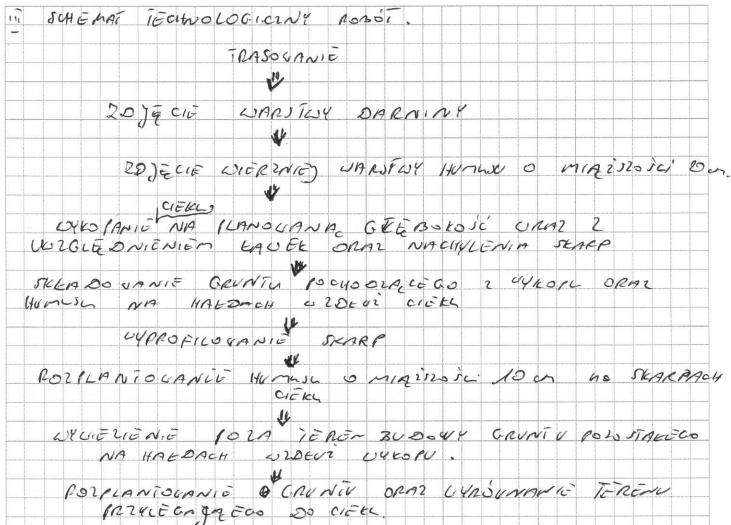 III SCHEMAT TECHNOLOGICZNY ROBÓT.
TRASOWANIE
ZDJĘCIE WARSTWY DARNINY
ZDJĘCIE WIERZNIEJ WARSTWY HUMUSU O MIĄŻSZOŚCI 20 cm.
CIEKU
WYKOPANIE NA PLANOWANĄ GŁĘBOKOŚĆ WRAZ Z
UWZGLĘDNIENIEM ŁAWEK ORAZ NACHYLENIA SKARP
SKŁADOWANIE GRUNTU POCHODZĄCEGO Z WYKOPU ORAZ
HUMUSU NA HAŁDACH WZDŁUŻ CIEKU
WYPROFILOWANIE SKARP
ROZPLANTOWANIE HUMUSU O MIĄŻSZOŚCI 10 cm na SKARPACH
CIEKU
WYWIEZIENIE POZA TEREN BUDOWY GRUNTU POZOSTAŁEGO
NA HAŁDACH WZDŁUŻ WYKOPU.
ROZPLANTOWANIE GRUNTU ORAZ WYRÓWNANIE TERENU
PRZYLEGAJĄCEGO DO CIEKU.